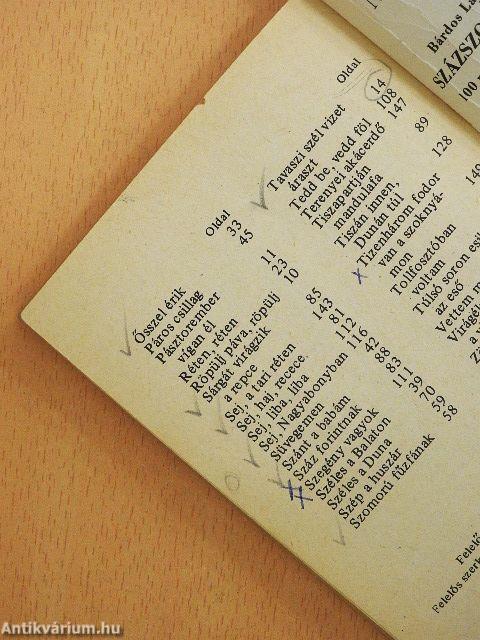 Bárdos La
SZÁZSZO
100
Oldal
Ősszel érik 33
Páros csillag 45
Pásztorember
vígan él 11
Réten, réten 23
Röpülj páva, röpülj 10
Sárgát virágzik
a repce 85
Sej, a tari réten 143
Sej, haj, recece 81
Sej, liba, liba 112
Sej, Nagyabonyban 116
Süvegemen 42
Szánt a babám 88
Száz forintnak 83
Szegény vagyok 111
Széles a Balaton 39
Széles a Duna 70
Szép a huszár 59
Szomorú fűzfának 58
Oldal
Tavaszi szél vizet
áraszt 14
Tedd be, vedd föl 108
Terenyei akácerdő 147
Tiszapartján
mandulafa 89
Tiszán innen,
Dunán túl 128
Tizenhárom fodor
van a szoknyá-
mon
Tollfosztóban
voltam
Túlsó soron esik
az eső
Vettem
Felelő
Felelős szerk
Antikvárium.hu